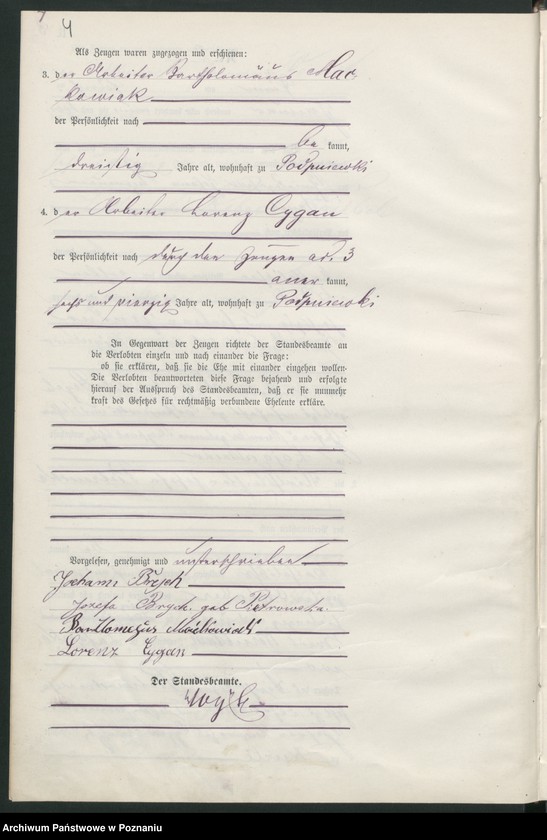 4
Als Zeugen waren zugezogen und erschienen:
3. der Arbeiter Bartholomäus Mac
kowiak
der Persönlichkeit nach
be kannt,
dreißig Jahre alt, wohnhaft zu Podpniewki
4. der Arbeiter Lorenz Cygan
der Persönlichkeit nach durch den Zeugen ad. 3
aner kannt,
sechs und vierzig Jahre alt, wohnhaft zu Podpniewki
In Gegenwart der Zeugen richtete der Standesbeamte an
die Verlobten einzeln und nach einander die Frage:
ob sie erklären, daß sie die Ehe mit einander eingehen wollen.
Die Verlobten beantworteten diese Frage bejahend und erfolgte
hierauf der Ausspruch des Standesbeamten, daß er sie nunmehr
kraft des Gesetzes für rechtmäßig verbundene Eheleute erkläre.
Vorgelesen, genehmigt und unterschrieben
Johann
Josefa Brych geb.
Maćkowiak
Lorenz Cygan
Der Standesbeamte.
Archiwum Państwowe w Poznaniu